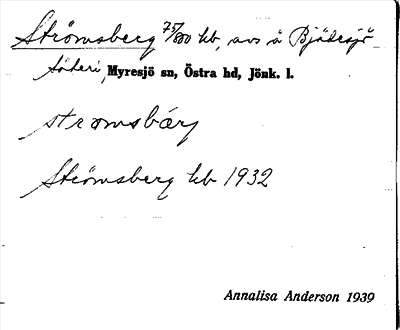 Strömsberg 75/800 hb, avs å Bjädesjö
säteri, Myresjö sn, Östra hd, Jönk. l.
strömsbärj
Strömsberg hb 1932
Annalisa Anderson 1939